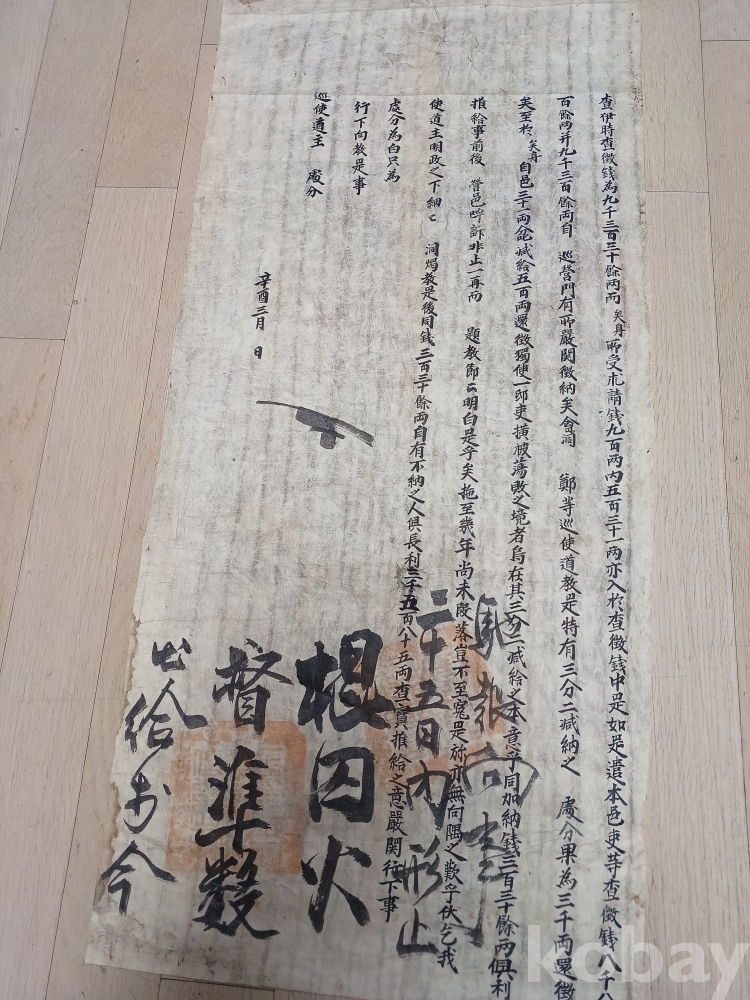 查伊時查徵錢為九千三百三十餘兩而矣身所受朮請錢九百兩內五百三十一兩亦入於查徵錢中是如是遣本邑吏等查徵錢八千八
百餘兩并九千三百餘兩自 巡營門有所嚴関徵納矣會洞 鄭等巡使道教是特有三分二减納之 處分果為三千兩還徵
矣至於矣身自邑三十一兩㐣减給五百兩還徵獨使一邸吏橫被蕩敗之境者烏在其三分二减給之本意乎同加納錢三百三十餘兩俱利
推給事前後 營邑呼訴非止一再而 題教節々明白是乎矣拖至幾年尚未段落豈不至寃是旀亦無向隅之歎乎伏乞我
使道主明政之下細々 洞燭教是後同錢三百三十餘兩自有不納之人俱長利三千五百八十五兩查實推給之意嚴関行下事
處分為白只為
行下向教是事
巡使道主 處分
辛酉三月 日
報
二十五日內形止
棍囚火
督準數
出給為今
kobay